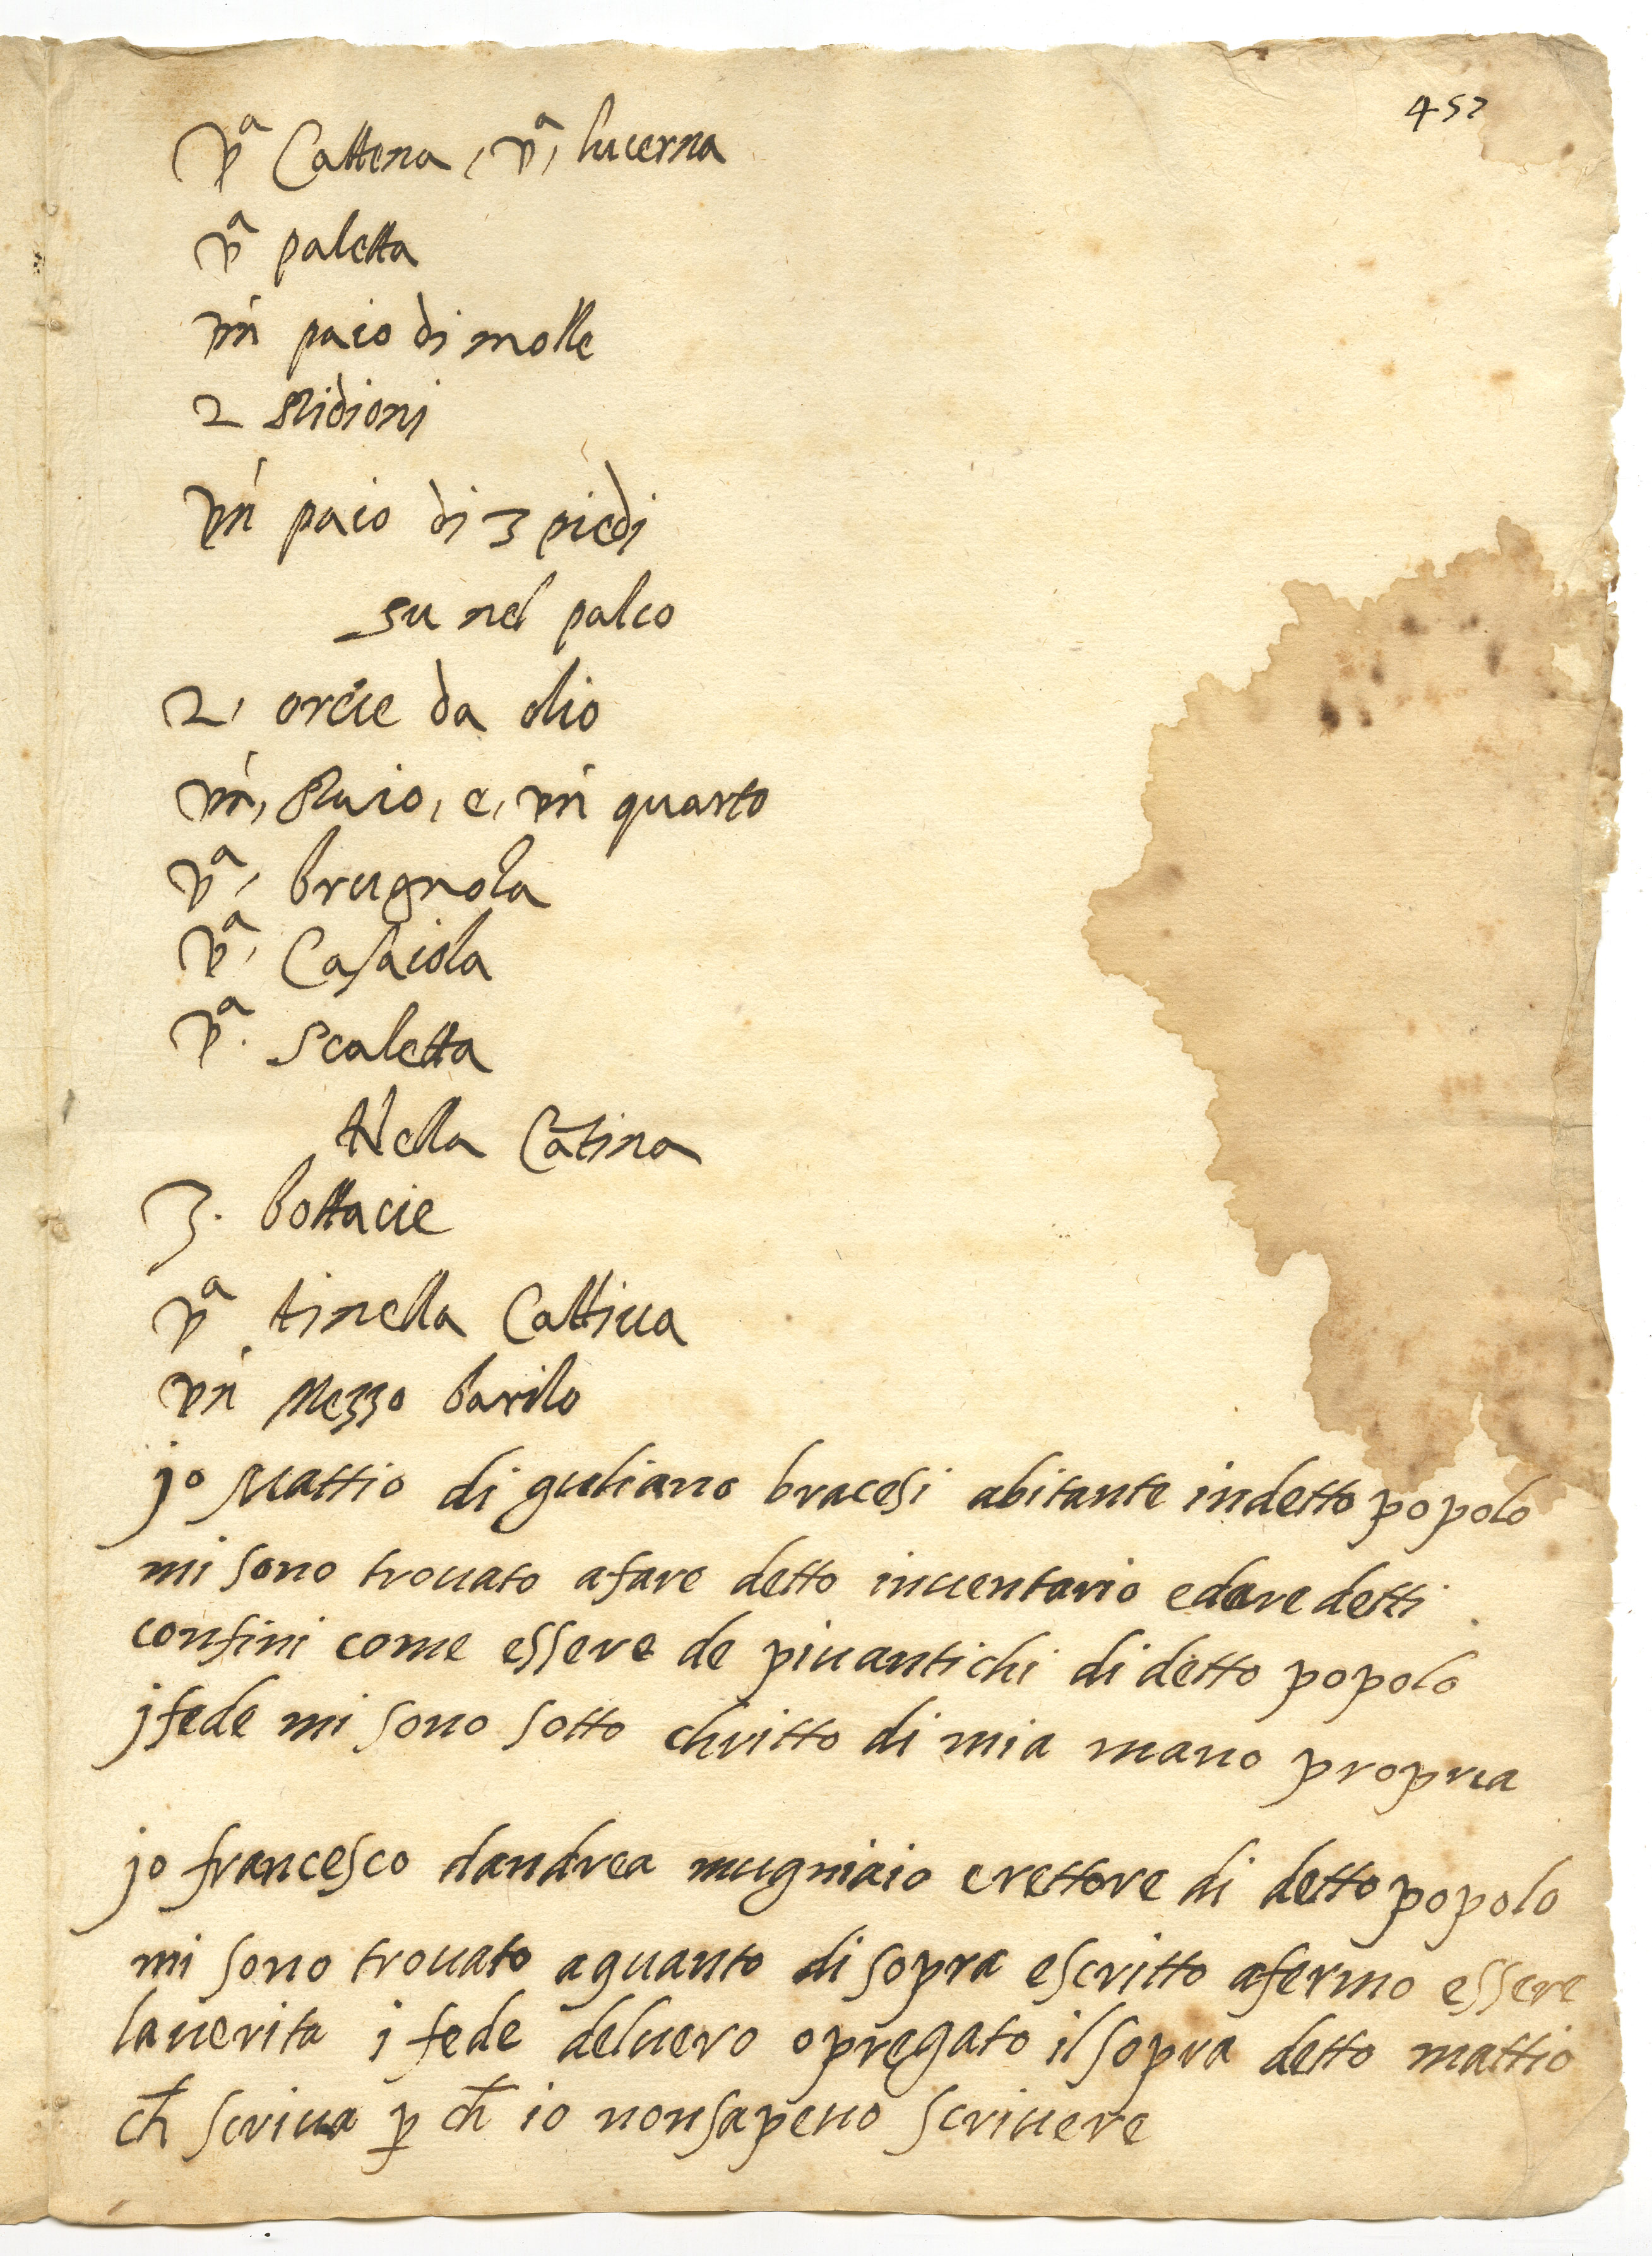 457
va Cattena, va, lucerna
va paletta
un paio di molle
2 stidioni
un paio di 3 piedi
su nel palco
2, orcie da olio
un, staio, e, un quarto
va, brugnola
va, Casaiola
va. scaletta
Nella Catina
3. bottacie
va tinella Cattiua
un Mezzo barilo
jo Mattio di guliano bracesi abitante indetto popolo
mi sono trouato afare detto inuentario edare detti
confini come essere de piuantichi di detto popolo
jfede mi sono sotto chritto di mia mano propria
jo francesco dandrea mugniaio erettore di detto popolo
mi sono trouato aquanto di sopra escritto afermo essere
lauerita i fede deluero opregato ilsopra detto mattio
ch̄ scriua ꝑ ch̄ io nonsapeuo scriuere